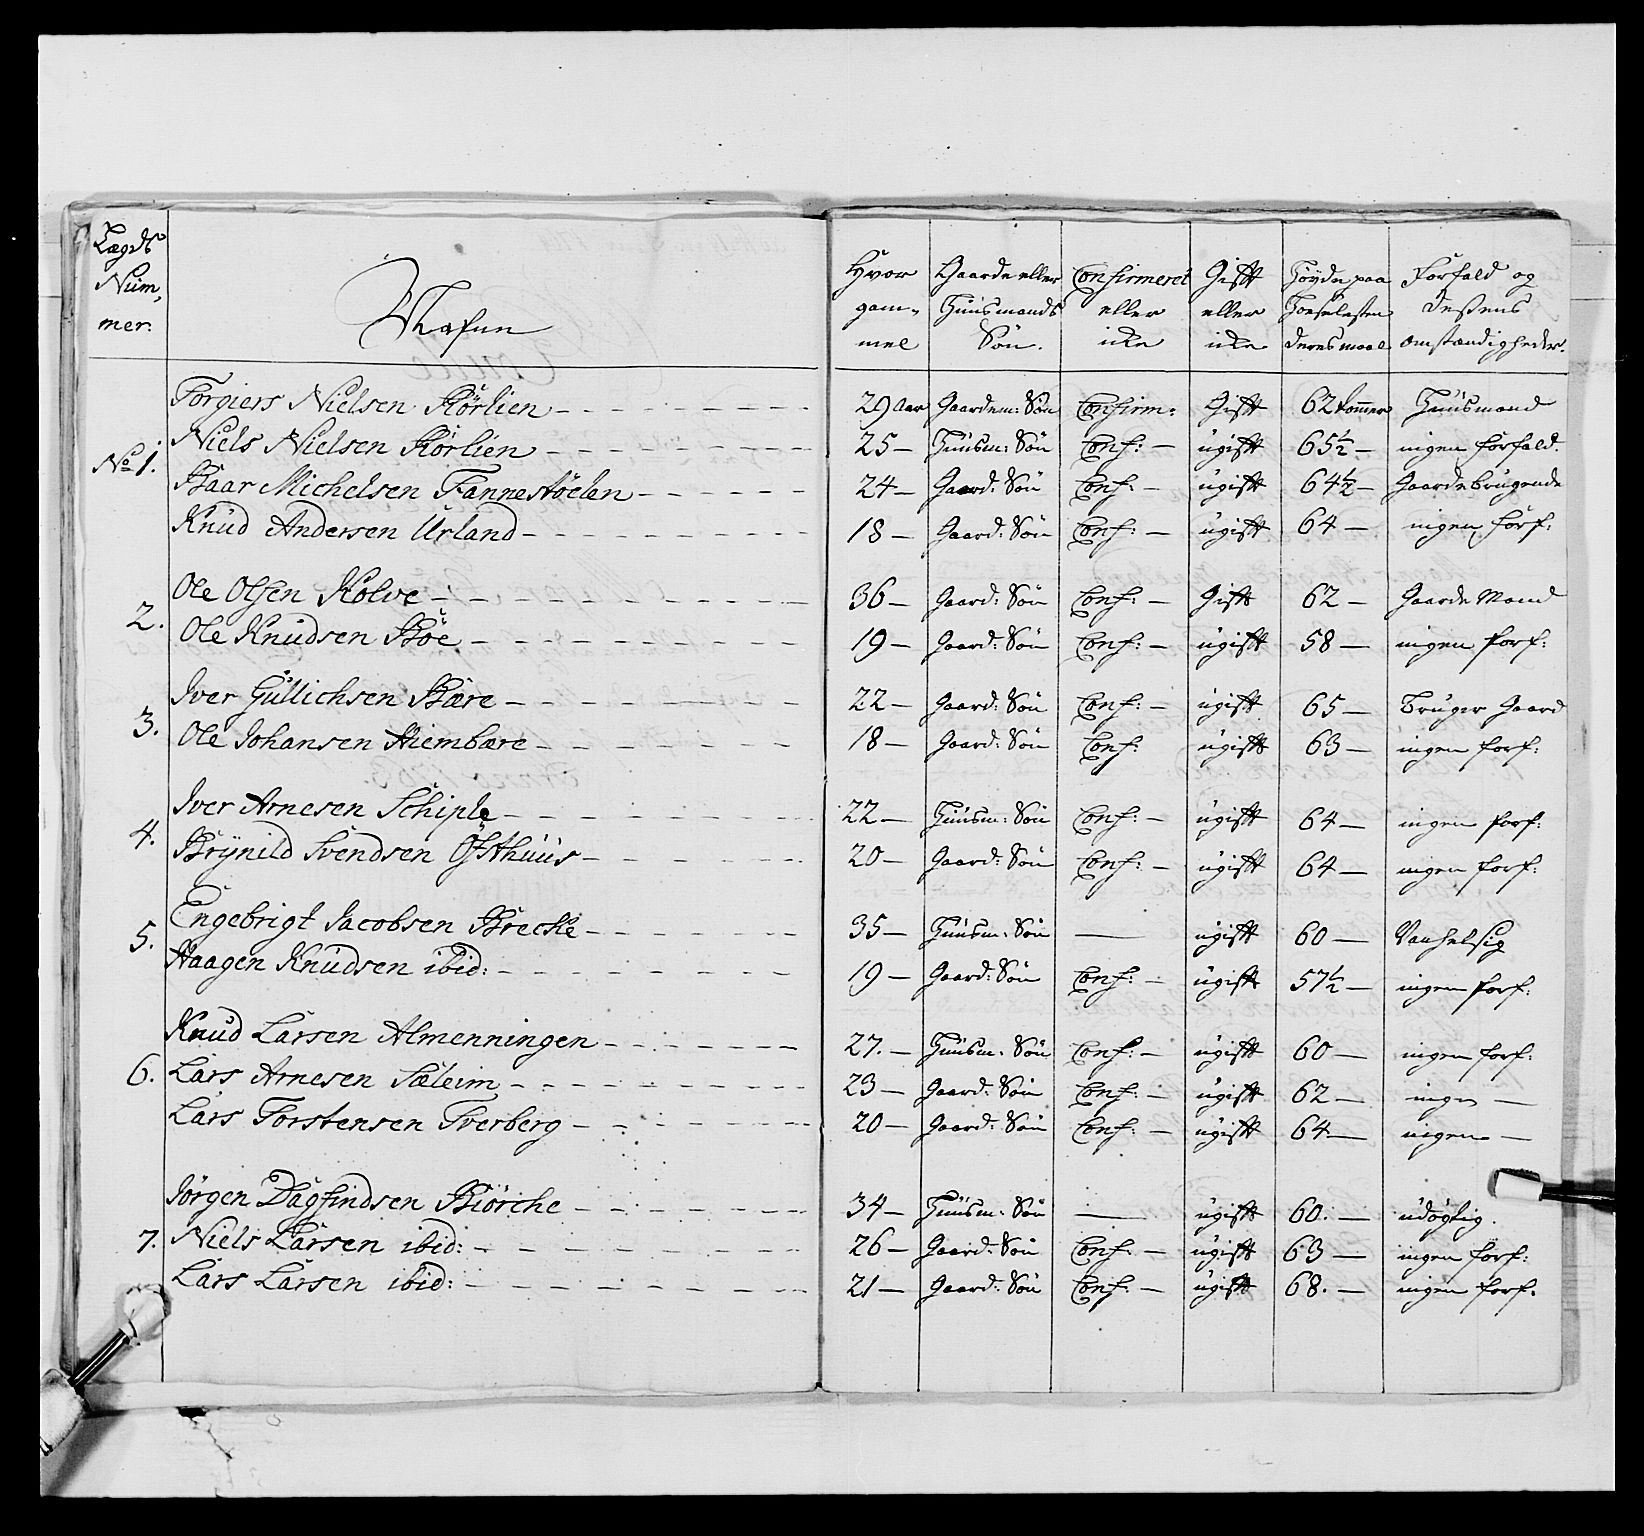 Lægds
Num,
mer.
Nafnn
Hvor
gam-
mel
Gaarde eller
Huusmands
Søn.
Confirmeret
eller
icke
Gift
eller
icke
Høyde paa
deres maal
Forfald og
deßens
omstændigheder.
Torgiers Nielsen Kørlien 29 Aar Gaardem: Søn Confirm: Gift 62 tommer Huusmand
No 1. Niels Nielsen Kørlien 25 Huusm: Søn Conf: ugift 65½ ingen forfald.
Baar Michelsen Fannestøelen 24 Gaard: Søn Conf: ugift 64½ Gaardebrugende
Knud Andersen Urland 18 Gaard: Søn Conf: ugift 64 ingen forf:
2. Ole Olsen Kolve 36 Gaard: Søn Conf: Gift 62 Gaarde Mand
Ole Knudsen Bøe 19 Gaard: Søn Conf: ugift 58 ingen forf:
3. Iver Gullichsen Bære 22 Gaard: Søn Conf: ugift 65 Bruger Gaard
Ole Johansen Hiembære 18 Gaard: Søn Conf: ugift 63 ingen forf:
4. Iver Arnesen Schiple 22 Huusm: Søn Conf: ugift 64 ingen forf:
Brynild Svendsen Østhuus 20 Gaard: Søn Conf: ugift 64 ingen forf:
5. Engebrigt Jacobsen Brecke 35 Huusm: Søn — ugift 60 Vanhelsig
Haagen Knudsen ibid: 19 Gaard: Søn Conf: ugift 57½ ingen forf:
Knud Larsen Almenningen 27. Huusm: Søn Conf: ugift 60 ingen forf:
6. Lars Arnesen Sæleim 23 Gaard: Søn Conf: ugift 62 ingen —
Lars Torstensen Tverberg 20 Gaard: Søn Conf: ugift 64 ingen —
Jørgen Dagfindsen Biørche 34 Huusm: Søn — ugift 60. udøgtig.
7. Niels Larsen ibid: 26 Gaard: Søn Conf: ugift 63 ingen forf:
Lars Larsen ibid: 21 Gaard: Søn Conf: ugift 68. ingen forf: